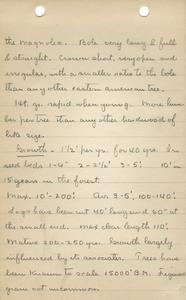 the magnolia. Bole very long & full
& straight. Crown short, very open and
irregular, with a smaller ratio to the bole
than any other eastern american tree.
Ht. gr. rapid when young. More lum-
ber per tree than any other hardwood of
like size.
Growth - 1½' per yr. for 40 yrs. In
seed beds 1-4" 2-2½' 3-5' 10'-
15 years in the forest.
Max. 10'-200'. Av. 3-5', 100-140'.
Logs have been cut 40' long and 50" at
the small end. Max clear length 110'.
Mature 200-250 yrs. Growth largely
influenced by its associates. Trees have
been known to scale 15000' B.M. Figured
grain not uncommon.